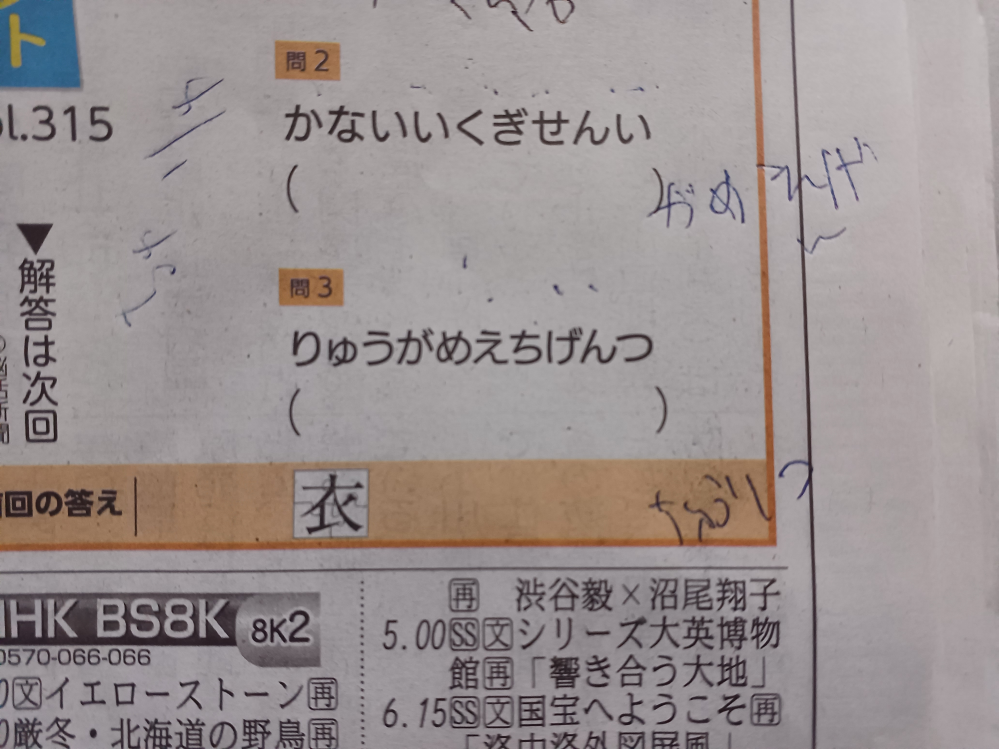 ト
ol.315
▼解答は次回
問2
かないいくぎせんい
(　　　　　　　　)
がめ
問3
りゅうがめえちげんつ
(　　　　　　　　)
前回の答え
衣
HK BS8K 8K2
0570-066-066
文イエローストーン再
厳冬・北海道の野鳥再
再　渋谷毅×沼尾翔子
5.00SS文シリーズ大英博物
館再「響き合う大地」
6.15SS文国宝へようこそ再
「洛中洛外図屏風」